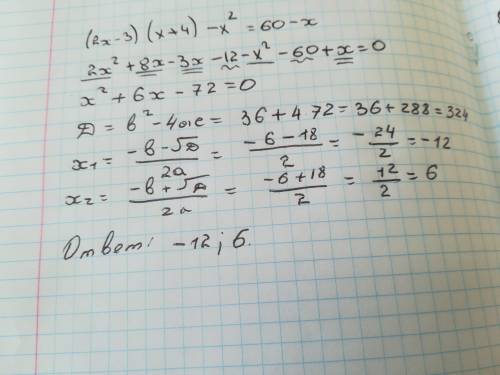 (2x-3)(x+4)-x²=60-x
2x²+8x-3x-12-x²-60+x=0
x²+6x-72=0
D=b²-4ac=36+4·72=36+288=324
x₁=(-b-√D)/2a=(-6-18)/2=-24/2=-12
x₂=(-b+√D)/2a=(-6+18)/2=12/2=6
Ответ: -12; 6.